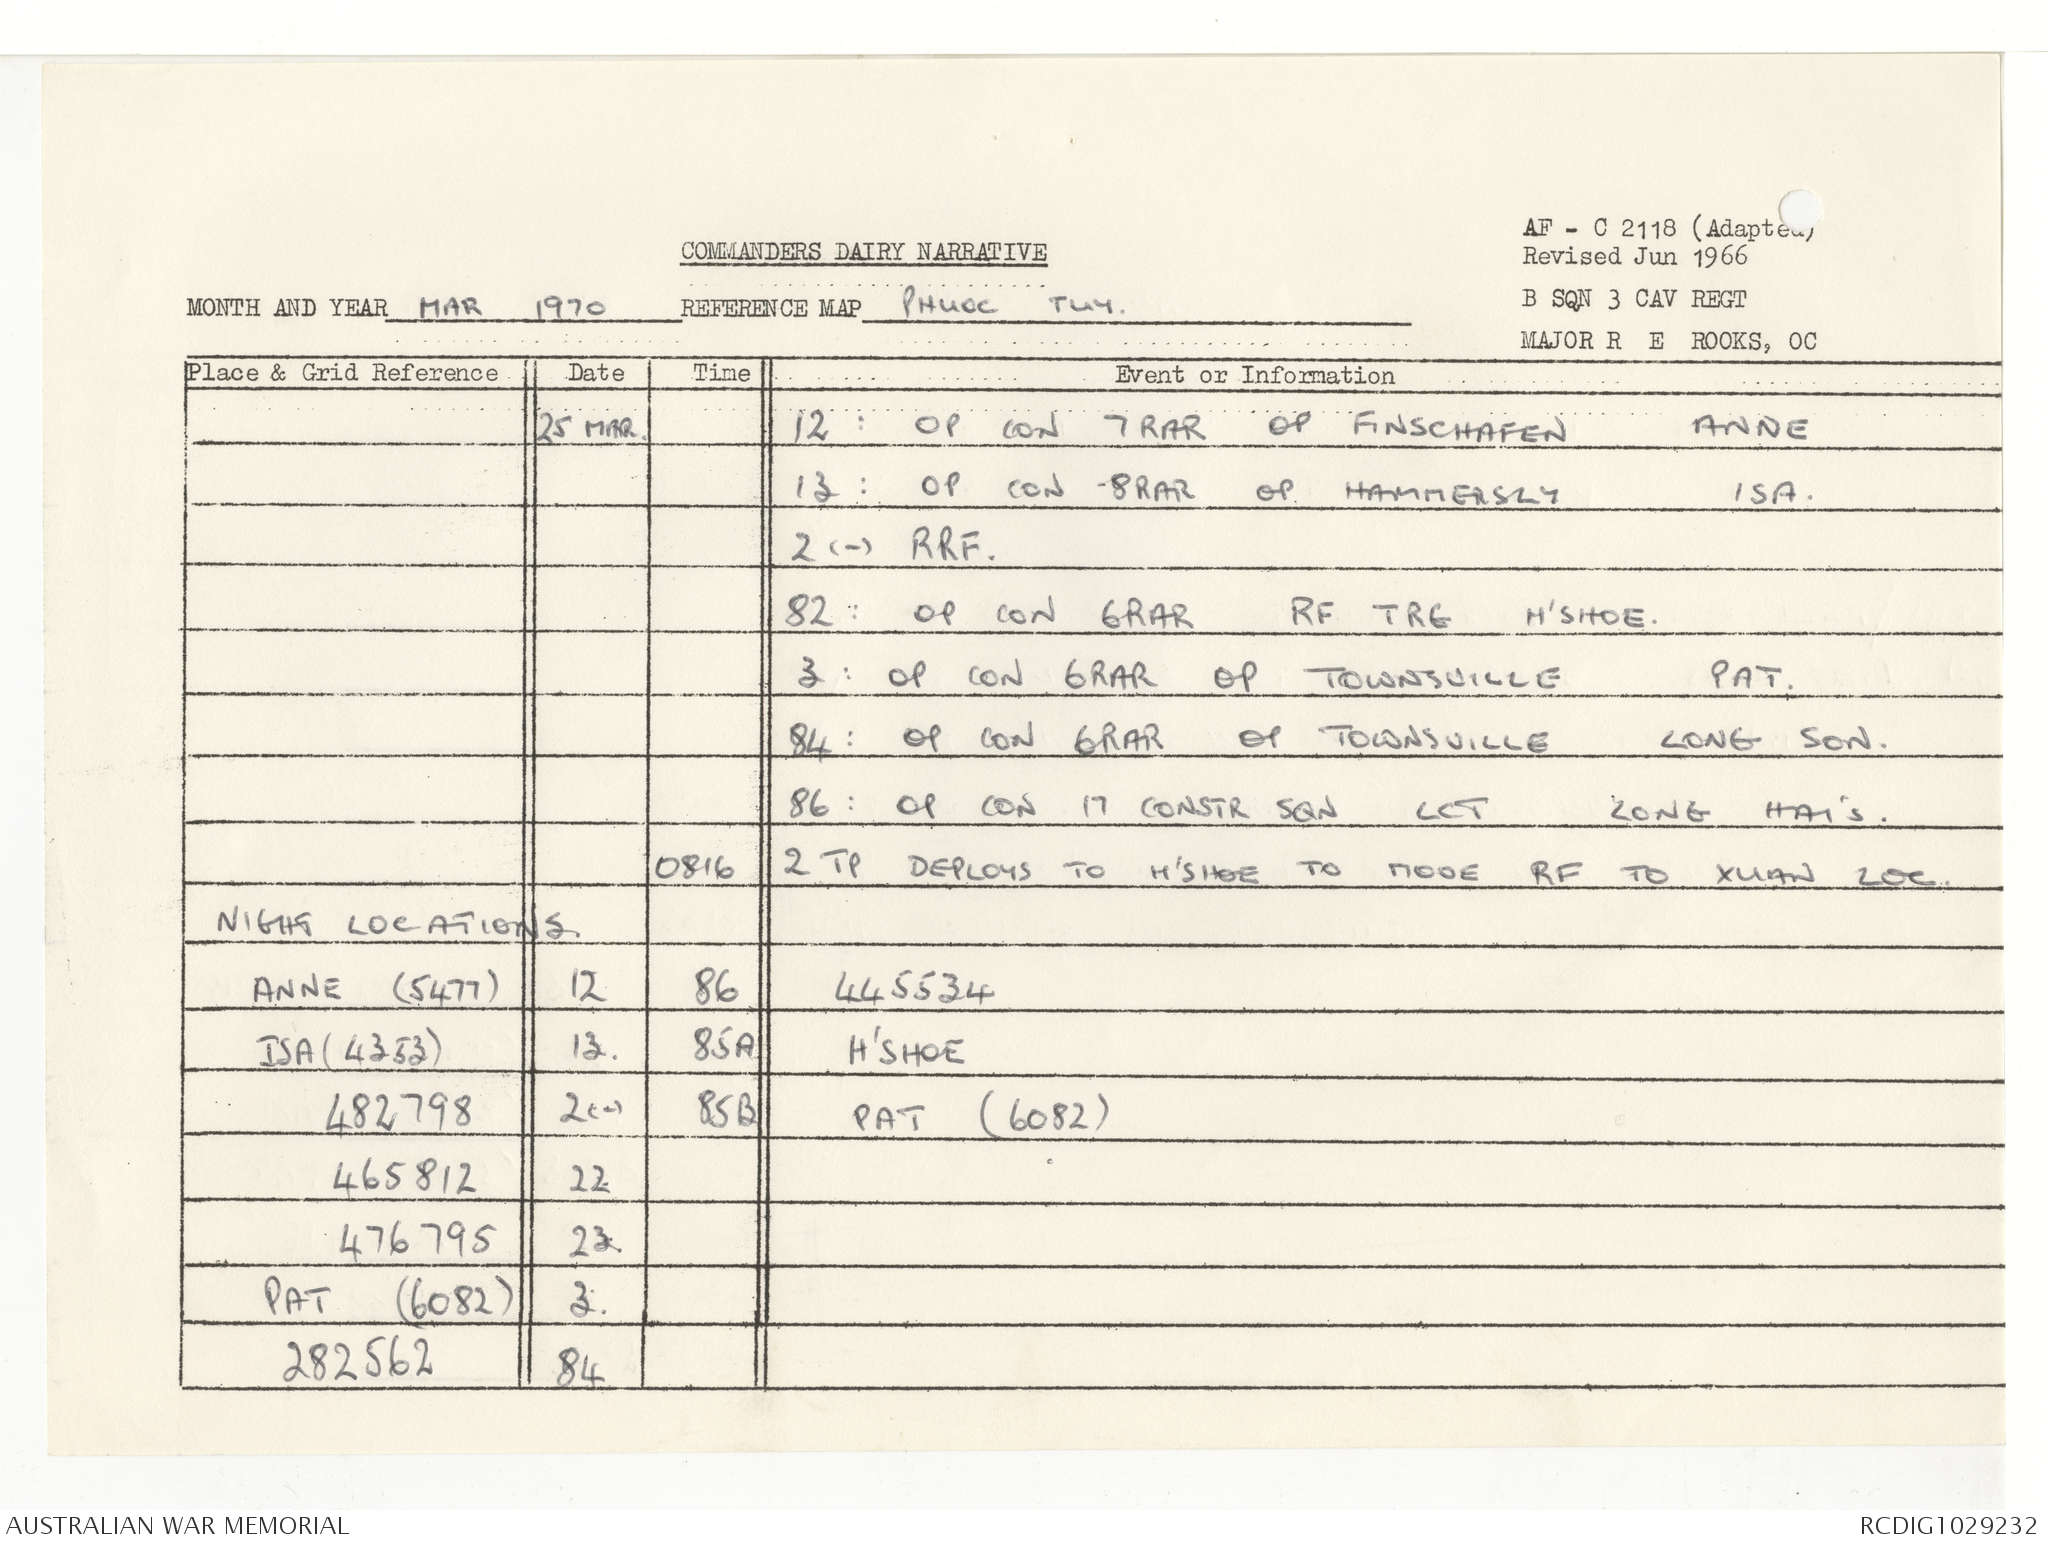 AF - C 2118 (Adapted)
Revised Jun 1966
COMMANDERS DAIRY NARRATIVE
B SQN 3 CAV REGT
MONTH AND YEAR MAR 1970 REFERENCE MAP PHUOC TUY.
MAJOR R E ROOKS, OC
Place & Grid Reference Date Time Event or Information
25 MAR. 12 : OP CON 7 RAR OP FINSCHAFEN ANNE
13 : OP CON 8RAR OP HAMMERSLY ISA.
2 (-) RRF.
82 : OP CON 6RAR RF TRG H'SHOE.
3 : OP CON 6RAR OP TOWNSVILLE PAT.
84 : OP CON 6RAR OP TOWNSVILLE LONG SON.
86 : OP CON 17 CONSTR SQN LCT LONG HAI'S.
0816 2 TP DEPLOYS TO H'SHOE TO MOVE RF TO XUAN LOC.
NIGHT LOCATIONS.
ANNE (5477) 12 86 445534
ISA (4353) 13. 85A H'SHOE
482798 2(-) 85B PAT (6082)
465812 22
476795 23
PAT (6082) 3.
282562 84
AUSTRALIAN WAR MEMORIAL RCDIG1029232